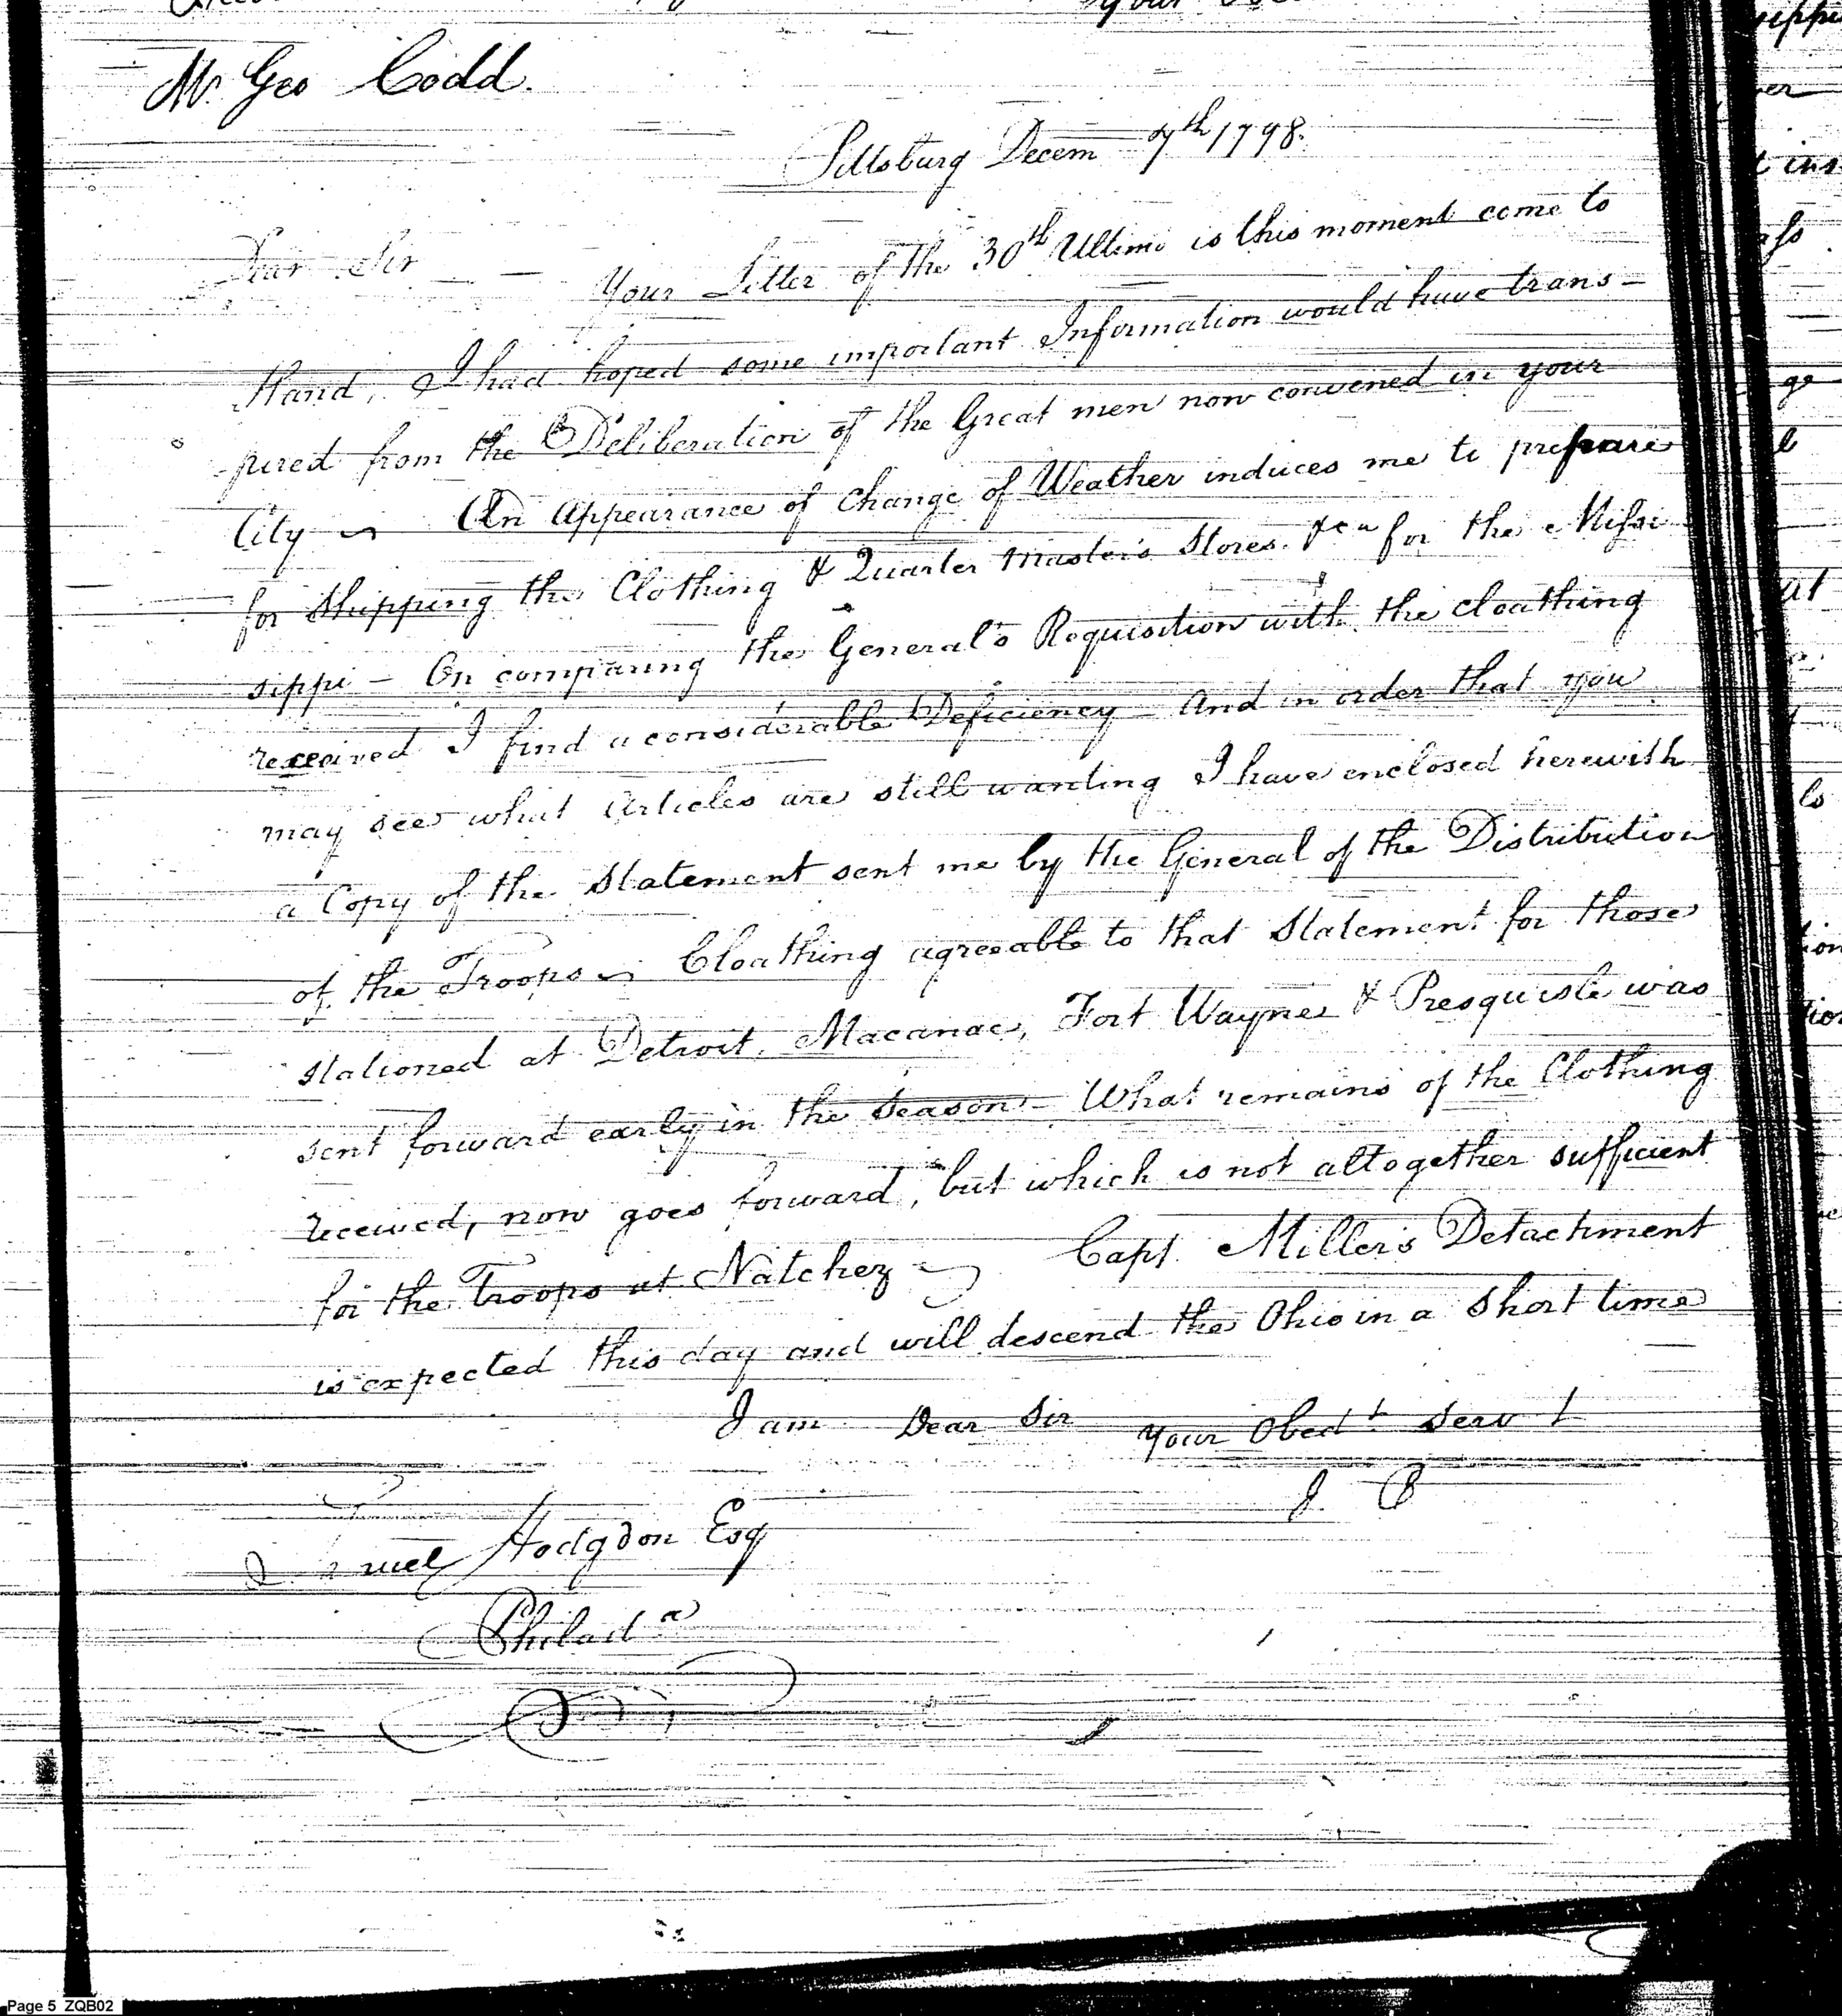 Mr. Geo Codd.
Pittsburg Decem 7th 1798.
Dear Sir — Your Letter of the 30th Ultimo is this moment come to
Hand, I had hoped some important Information would have trans-
-pired from the Deliberation of the Great men now convened in your
City — An Appearance of Change of Weather induces me to prepare
for Shipping the Clothing & Quarter Master's Stores &ca for the Missi
sippi — On comparing the General's Requisition with the cloathing
received I find a considerable Deficiency — And in order that you
may see what Articles are still wanting I have enclosed herewith
a Copy of the Statement sent me by the General of the Distribution
of the Troops — Cloathing agreeable to that Statement for those
stationed at Detroit, Macanac, Fort Wayne & Presquisle was
sent forward early in the Season — What remains of the Clothing
received, now goes forward, but which is not altogether sufficient
for the Troops at Natchez — Capt. Miller's Detachment
is expected this day and will descend the Ohio in a Short time
I am Dear Sir your Obedt Servt
J. C
Samuel Hodgdon Esq
Philada
Page 5 ZQB02